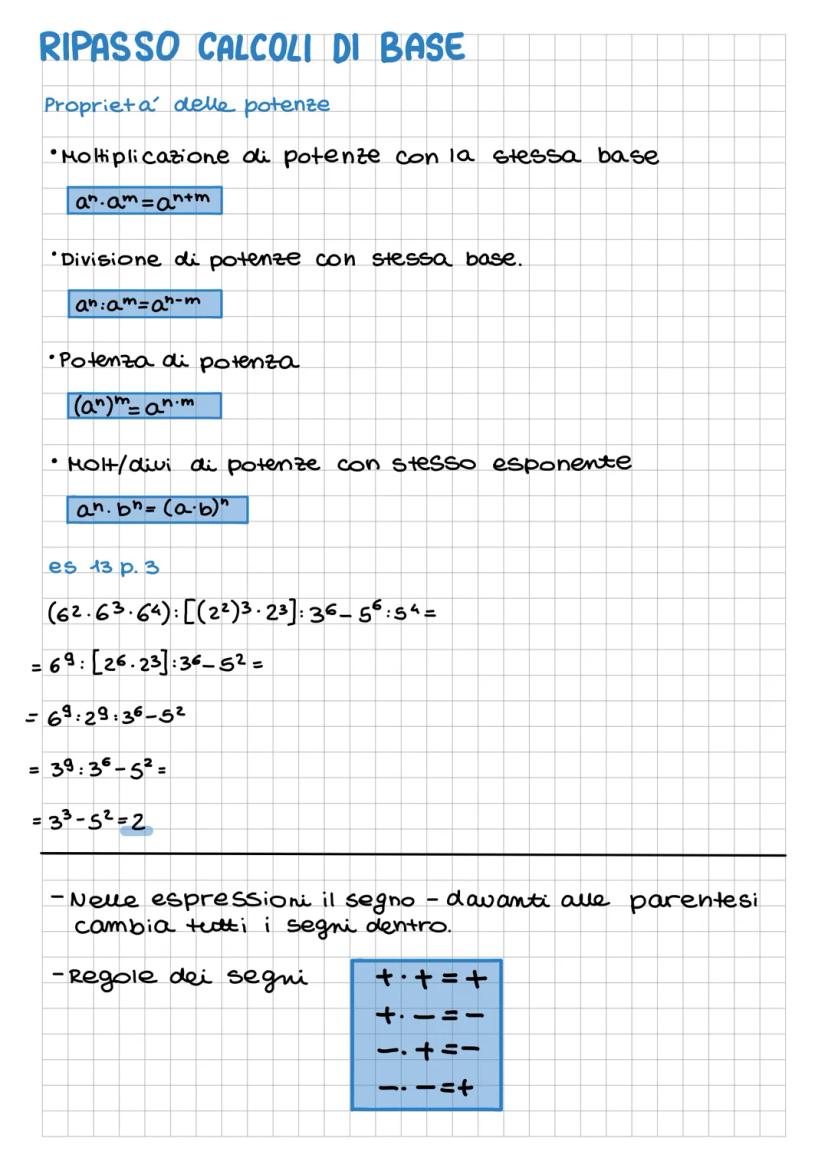 RIPASSO CALCOLI DI BASE
Proprieta' delle potenze
•Moltiplicazione di potenze con la stessa base
aⁿ·aᵐ=aⁿ⁺ᵐ
•Divisione di potenze con stessa base.
aⁿ:aᵐ=aⁿ⁻ᵐ
•Potenza di potenza
(aⁿ)ᵐ=aⁿ·ᵐ
• Molt/divi di potenze con stesso esponente
aⁿ·bⁿ=(a·b)ⁿ
es 13 p. 3
(6²·6³·6⁴):[(2²)³·2³]:3⁶-5⁶:5⁴=
=6⁹:[2⁶·2³]:3⁶-5²=
=6⁹:2⁹:3⁶-5²
=3⁹:3⁶-5²=
=3³-5²=2
-Nelle espressioni il segno - davanti alle parentesi
cambia tutti i segni dentro.
-Regole dei segni
+·+=+
+·-=-
-·+=-
-·-=+